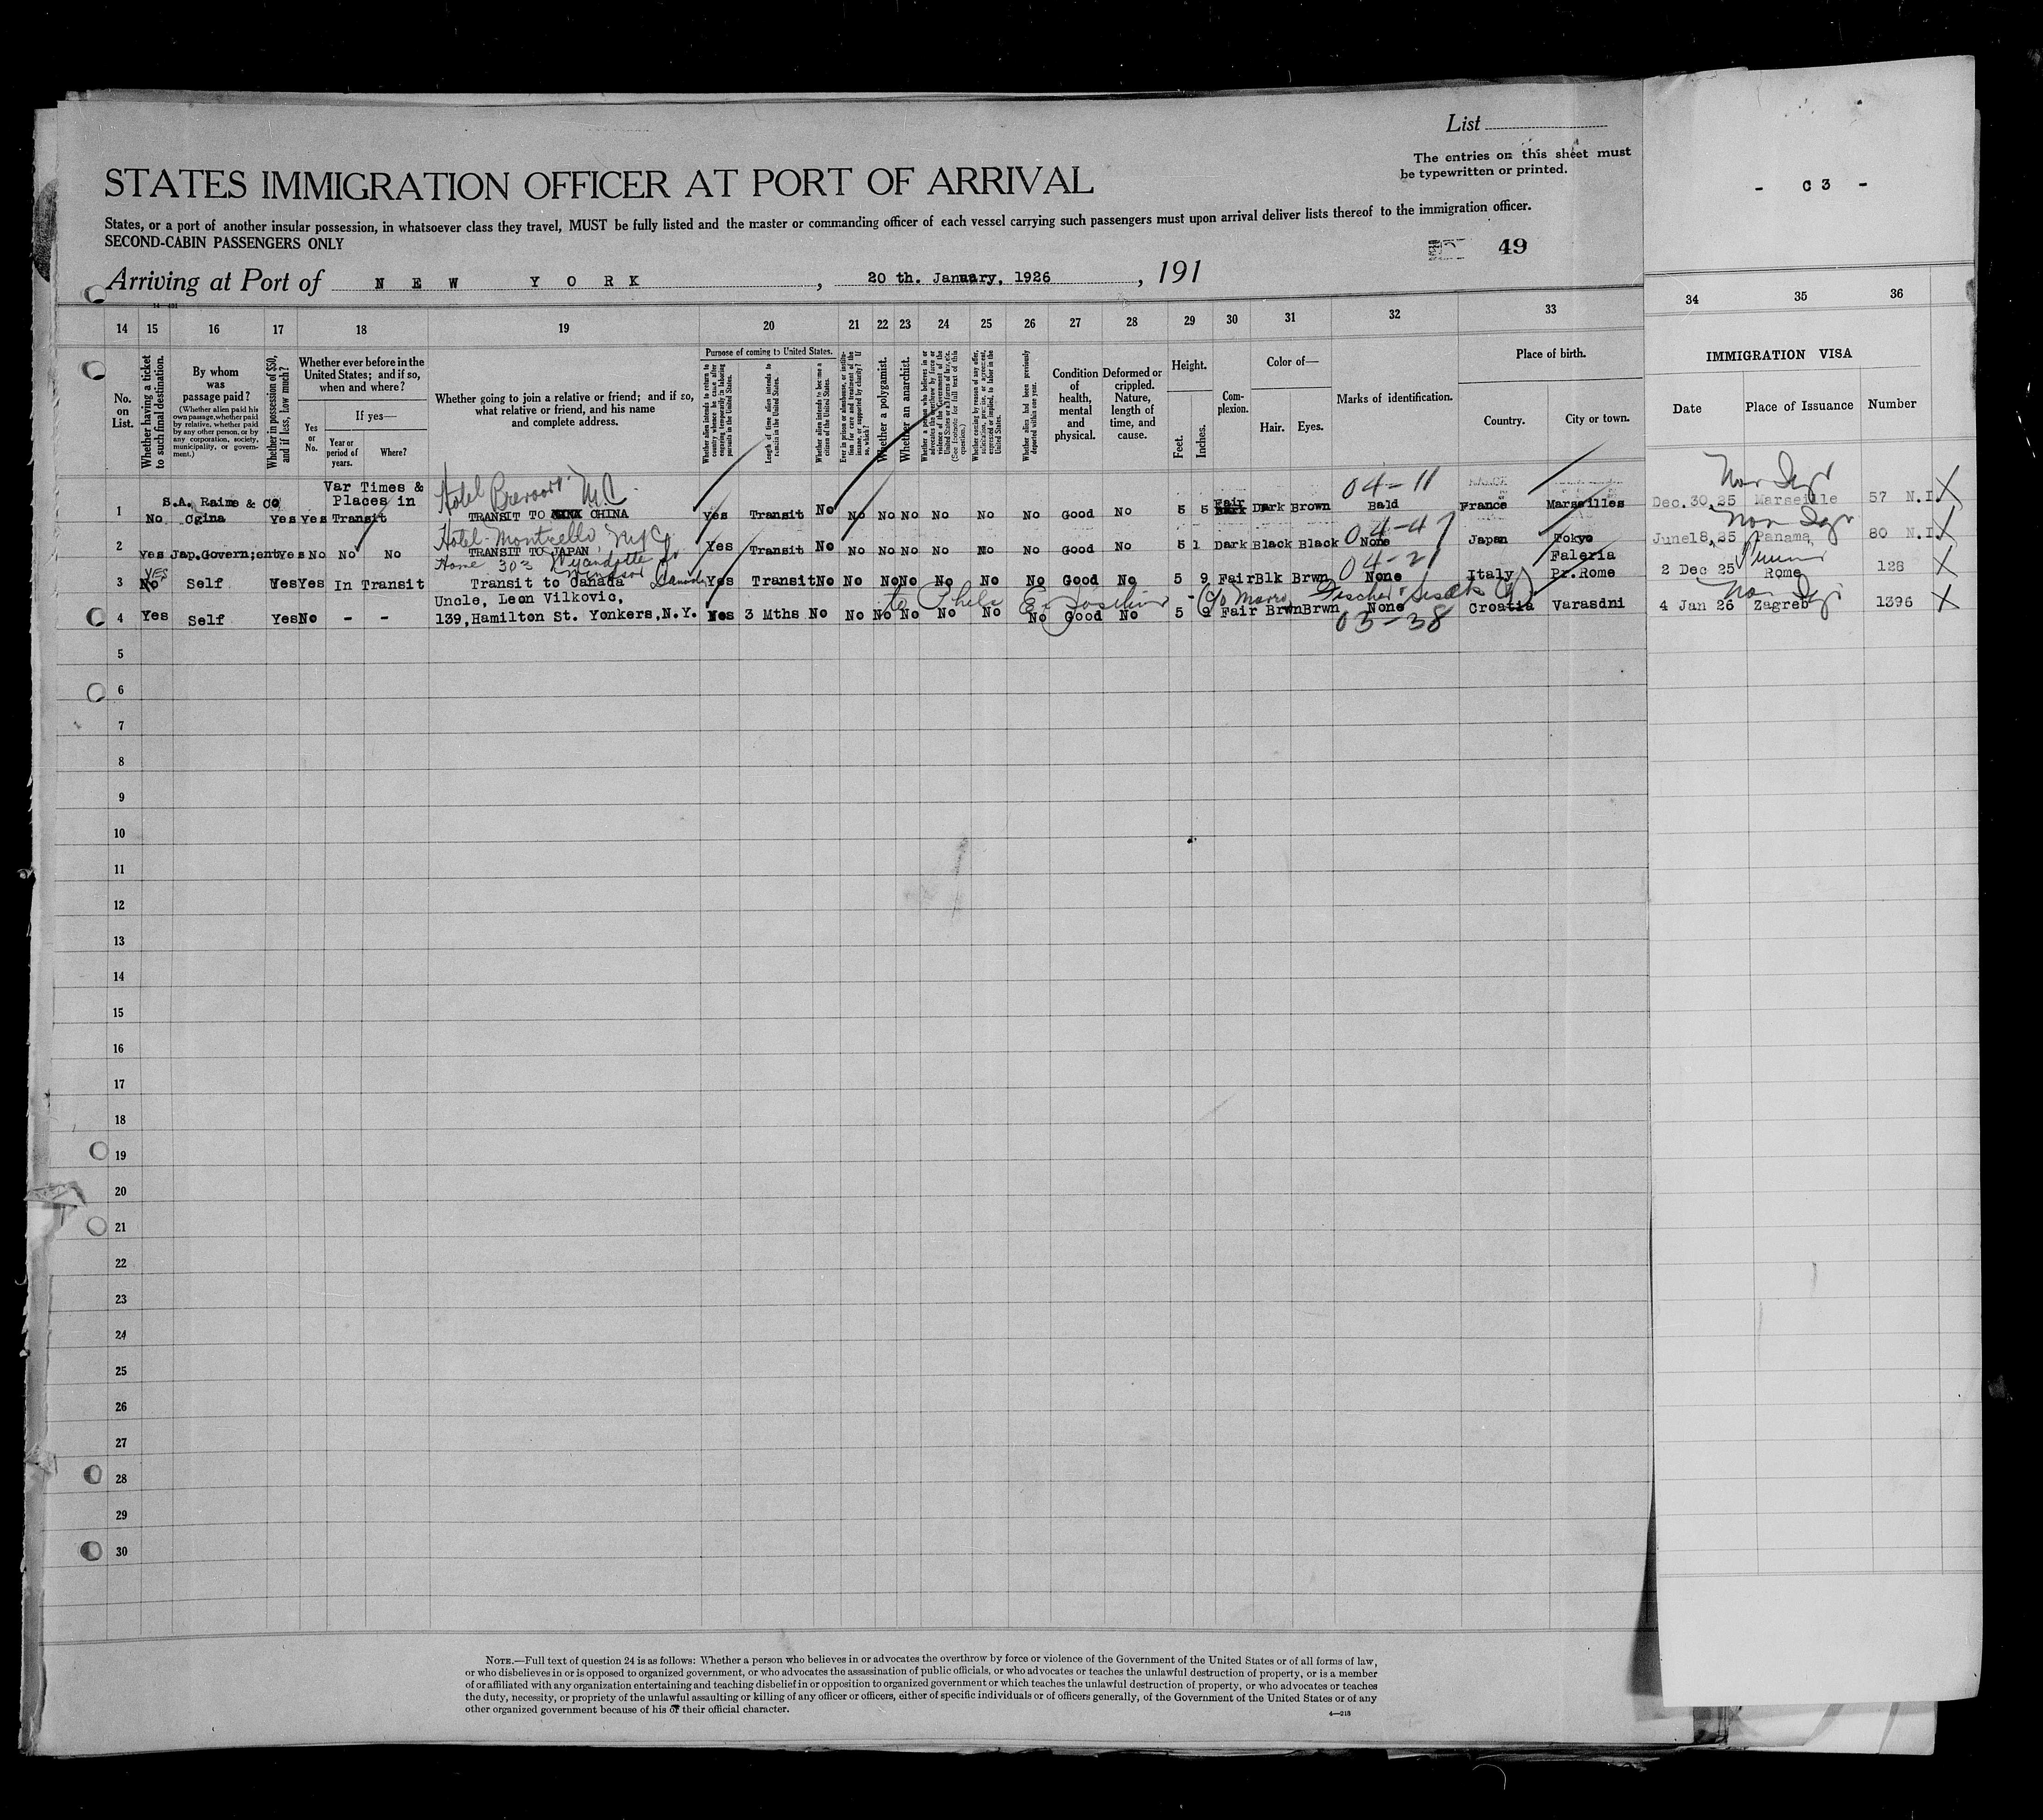 List
The entries on this sheet must
be typewritten or printed.
- C 3 -
STATES IMMIGRATION OFFICER AT PORT OF ARRIVAL
States, or a port of another insular possession, in whatsoever class they travel, MUST be fully listed and the master or commanding officer of each vessel carrying such passengers must upon arrival deliver lists thereof to the immigration officer.
SECOND-CABIN PASSENGERS ONLY
49
Arriving at Port of N E W Y O R K , 20 th. January, 1926 , 191
14 15 16 17 18 19 20 21 22 23 24 25 26 27 28 29 30 31 32 33 34 35 36
No. on List.
Whether having a ticket to such final destination.
By whom was passage paid?
(Whether alien paid his own passage, whether paid by relative, whether paid by any other person, or by any corporation, society, municipality, or government.)
Whether in possession of $50, and if less, how much?
Whether ever before in the United States; and if so, when and where?
Yes or No.
If yes—
Year or period of years.
Where?
Whether going to join a relative or friend; and if so, what relative or friend, and his name and complete address.
Purpose of coming to United States.
Whether alien intends to return to country whence he came after engaging temporarily in laboring pursuits in the United States.
Length of time alien intends to remain in the United States.
Whether alien intends to become a citizen of the United States.
Ever in prison or almshouse, or institution for care and treatment of the insane, or supported by charity? If so, which?
Whether a polygamist.
Whether an anarchist.
Whether coming by reason of any offer, solicitation, promise, or agreement, expressed or implied, to labor in the United States.
Whether alien had been previously deported within one year.
Condition of health, mental and physical.
Deformed or crippled. Nature, length of time, and cause.
Height.
Feet.
Inches.
Complexion.
Color of—
Hair.
Eyes.
Marks of identification.
Place of birth.
Country.
City or town.
IMMIGRATION VISA
Date
Place of Issuance
Number
Hotel Brevoort N.Y.C. 04-11
1 No S.A. Raime & Co Cgina Yes Yes Var Times & Places in Transit TRANSIT TO CHINA Yes Transit No No No No No No No Good No 5 5 Fair Dark Brown Bald France Marseilles Dec.30,25 Marseille 57 N.I.
Hotel Monticello NYC 04-47
2 Yes Jap.Govern;ent Yes No No No TRANSIT TO JAPAN Yes Transit No No No No No No No Good No 5 1 Dark Black Black None Japan Tokyo June18,25 Panama 80 N.I.
Home 303 Wyandotte St Windsor Canada 04-21
3 YES No Self Yes Yes In Transit Transit to Canada Yes Transit No No No No No No No Good No 5 9 Fair Blk Brwn None Italy Faleria Pr.Rome 2 Dec 25 Rome 128
to Phila 03-38
4 Yes Self Yes No - - Uncle, Leon Vilkovic,
139,Hamilton St. Yonkers,N.Y. Yes 3 Mths No No No No No No No Good No 5 9 Fair Brwn Brwn None Croatia Varasdni 4 Jan 26 Zagreb 1396
5
6
7
8
9
10
11
12
13
14
15
16
17
18
19
20
21
22
23
24
25
26
27
28
29
30
NOTE.—Full text of question 24 is as follows: Whether a person who believes in or advocates the overthrow by force or violence of the Government of the United States or of all forms of law,
or who disbelieves in or is opposed to organized government, or who advocates the assassination of public officials, or who advocates or teaches the unlawful destruction of property, or is a member
of or affiliated with any organization entertaining and teaching disbelief in or opposition to organized government or which teaches the unlawful destruction of property, or who advocates or teaches
the duty, necessity, or propriety of the unlawful assaulting or killing of any officer or officers, either of specific individuals or of officers generally, of the Government of the United States or of any
other organized government because of his or their official character.
4—213